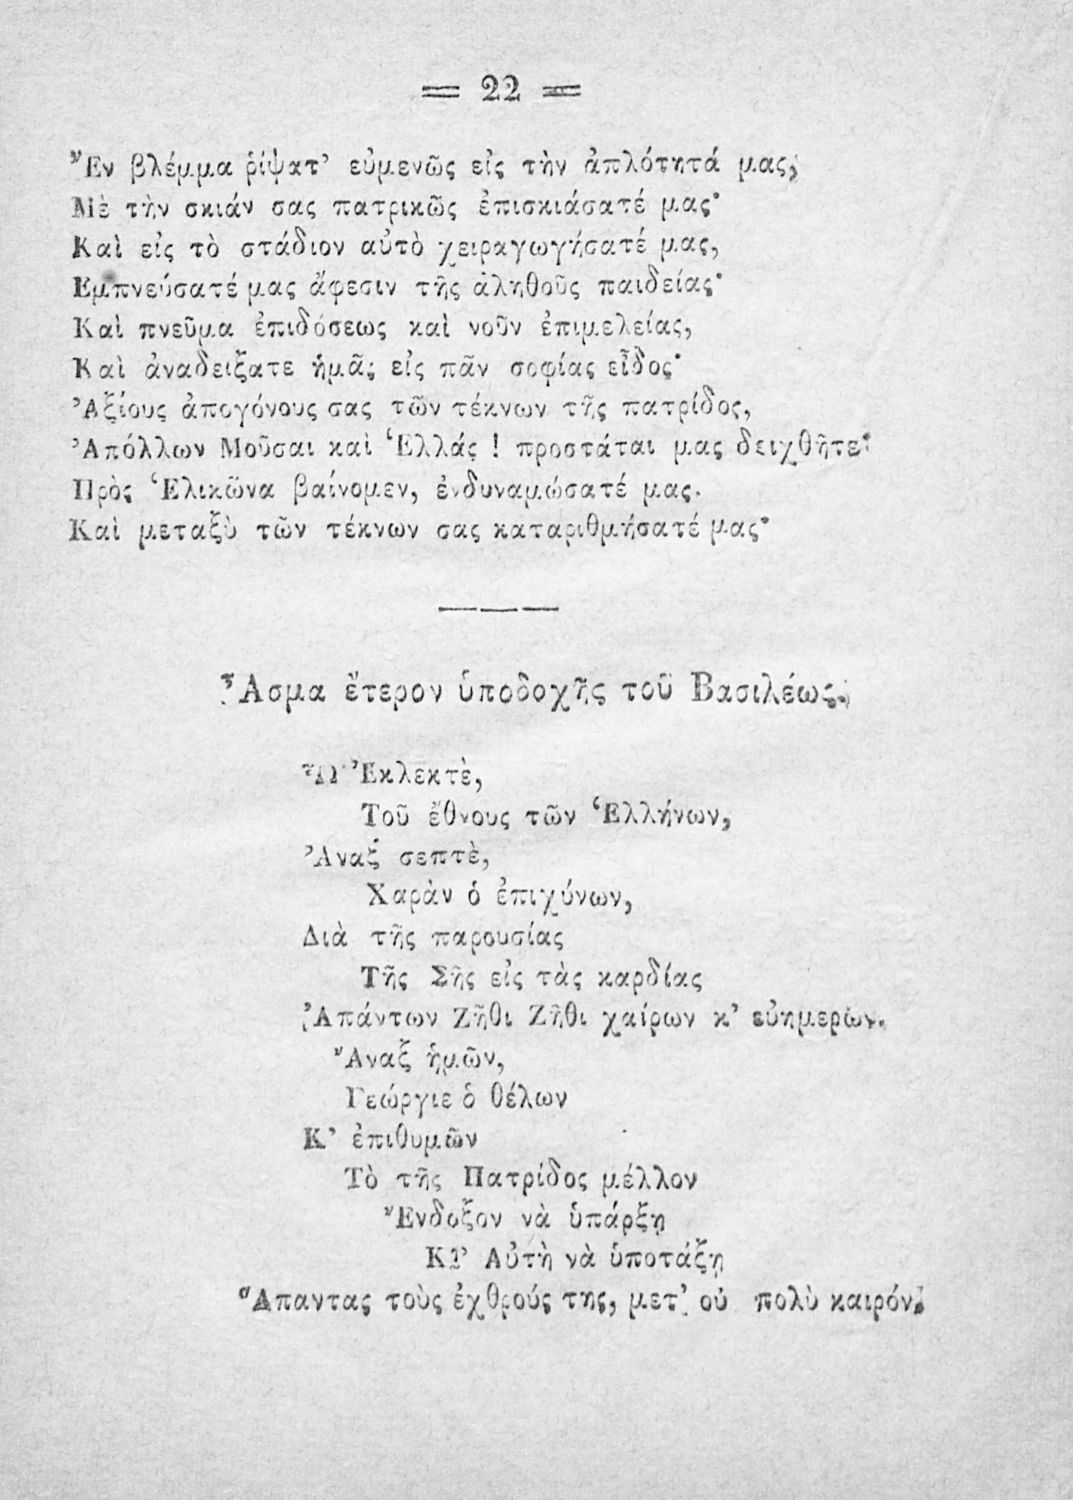 = 22 =
Ἓν βλέμμα ῥίψατ’ εὐμενῶς εἰς τὴν ἁπλότητά μας,
Μὲ τὴν σκιάν σας πατρικῶς ἐπισκιάσατέ μας·
Καὶ εἰς τὸ στάδιον αὐτὸ χειραγωγήσατέ μας,
Εμπνεύσατέ μας ἄφεσιν τῆς ἀληθοῦς παιδείας·
Καὶ πνεῦμα ἐπιδόσεως καὶ νοῦν ἐπιμελείας,
Καὶ ἀναδείξατε ἡμᾶς εἰς πᾶν σοφίας εἶδος·
Ἀξίους ἀπογόνους σας τῶν τέκνων τῆς πατρίδος,
Ἀπόλλων Μοῦσαι καὶ Ἑλλάς ! προστάται μας δειχθῆτε·
Πρὸς Ἑλικῶνα βαίνομεν, ἐνδυναμώσατέ μας.
Καὶ μεταξὺ τῶν τέκνων σας καταριθμήσατέ μας·
ᾎσμα ἕτερον ὑποδοχῆς τοῦ Βασιλέως.
Ὦ Ἐκλεκτὲ,
Τοῦ ἔθνους τῶν Ἑλλήνων,
Ἀναξ σεπτὲ,
Χαρὰν ὁ ἐπιχύνων,
Διὰ τῆς παρουσίας
Τῆς Σῆς εἰς τὰς καρδίας
Ἀπάντων Ζῆθι Ζῆθι χαίρων κ’ εὐημερῶν.
Ἄναξ ἡμῶν,
Γεώργιε ὁ θέλων
Κ’ ἐπιθυμῶν
Τὸ τῆς Πατρίδος μέλλον
Ἔνδοξον νὰ ὑπάρξῃ
Κ’ Αὐτὴ νὰ ὑποτάξῃ
Ἅπαντας τοὺς ἐχθρούς της, μετ’ οὐ πολὺ καιρόν.